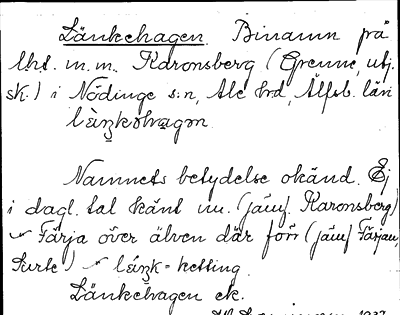 Länkehagen. Binamn på
lht. m.m. Karonsberg (Grenne, utj.
sk.) i Nödinge s:n, Ale hd, Älfsb. län
Namnets betydelse okänd. Ej
i dagl. tal känt nu. (jämf. Karonsberg)
Färja över älven där förr (jämf Färjan,
Surte) = ketting.
Länkehagen ek.
1937